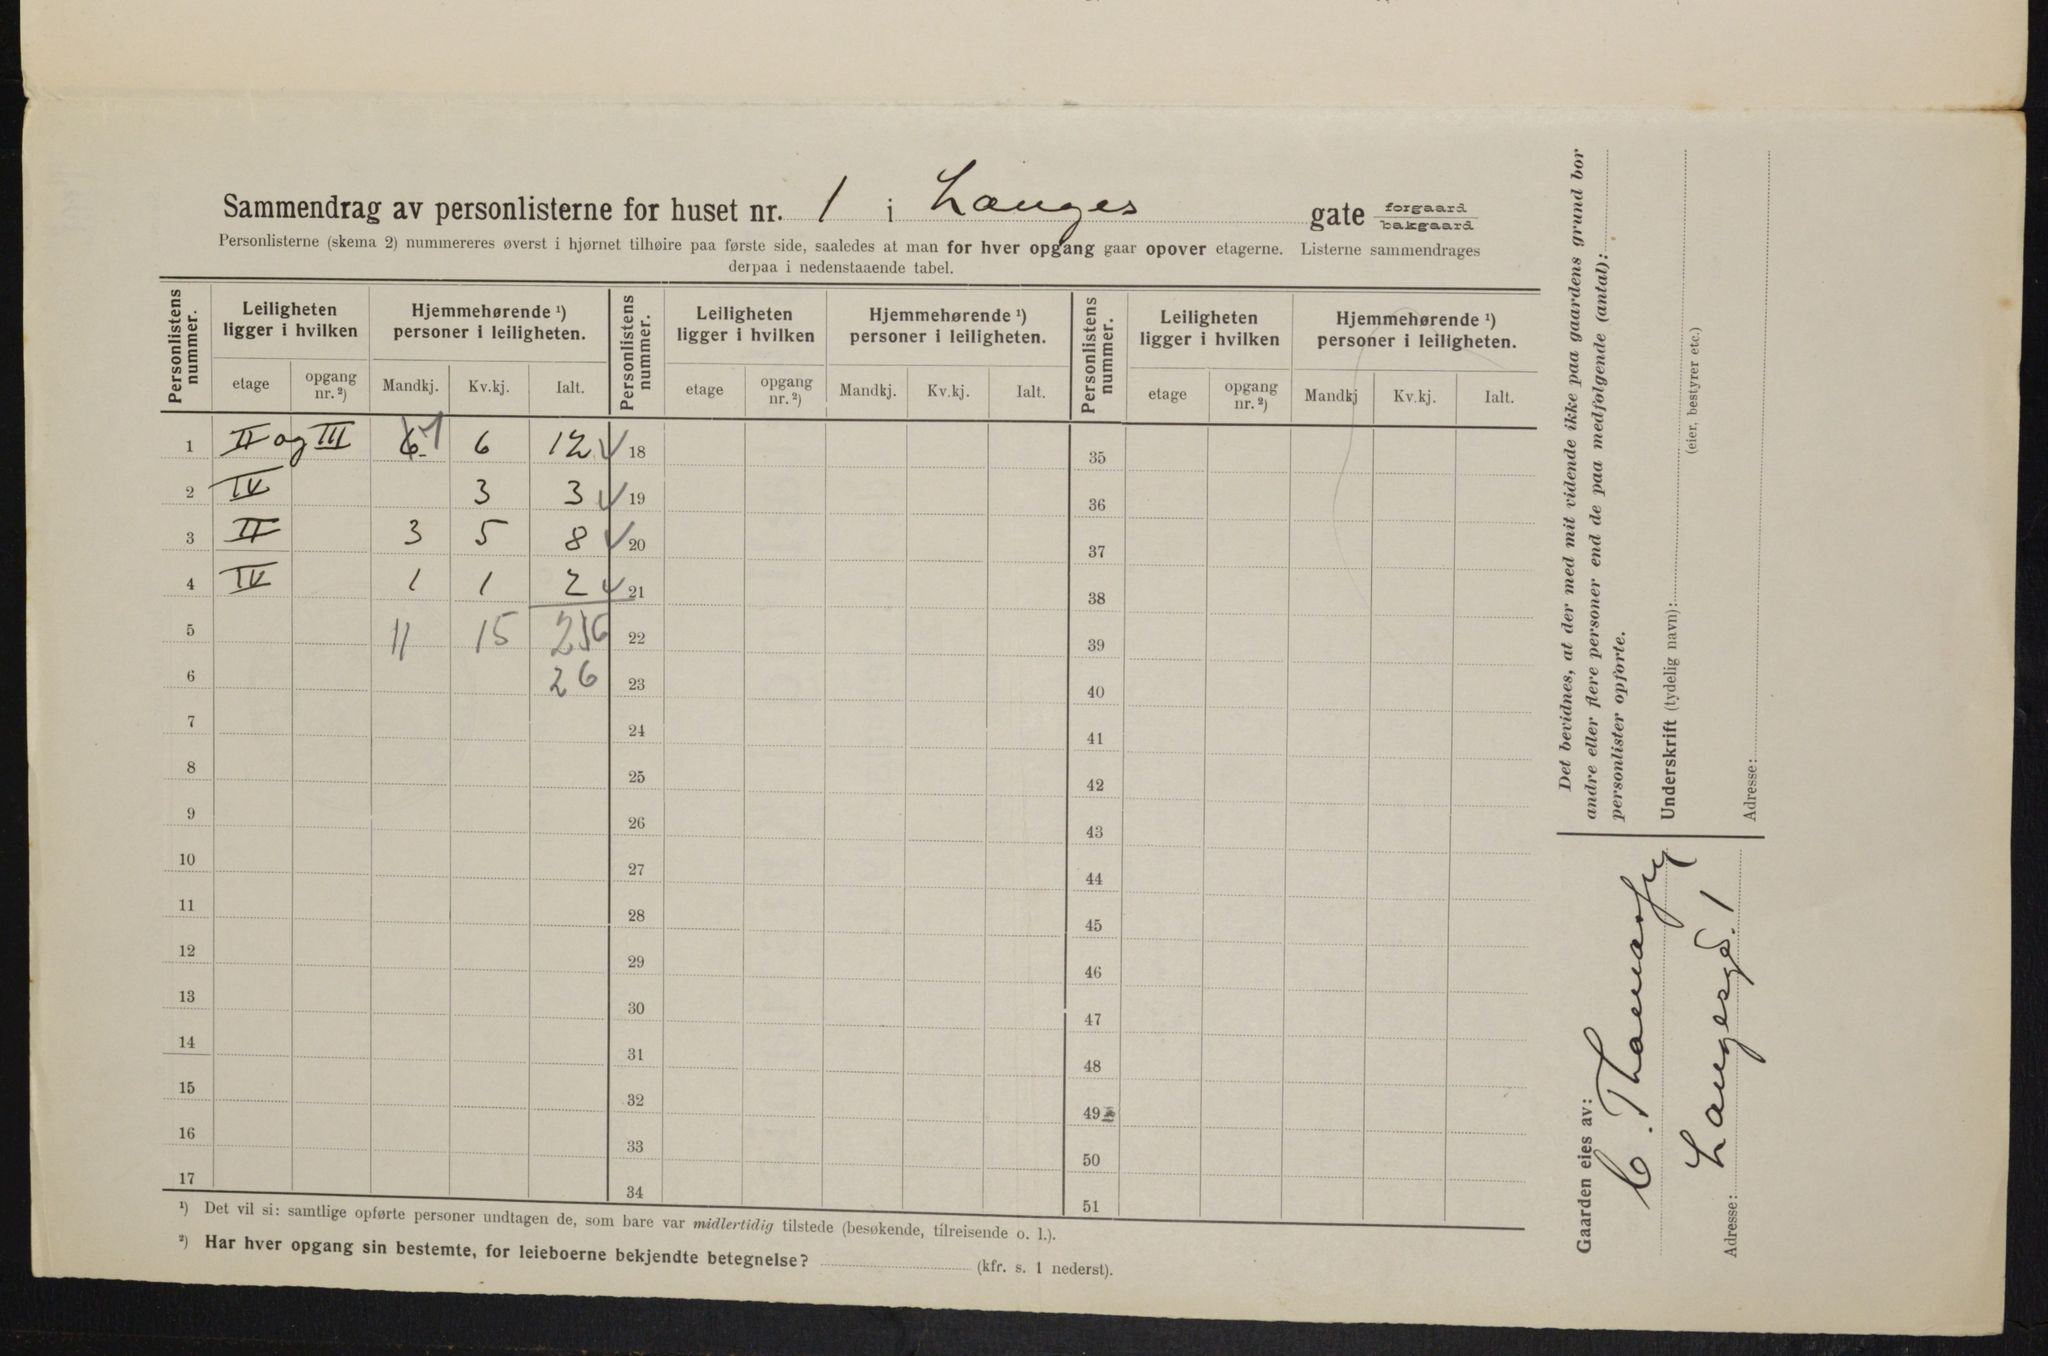 Sammendrag av personlisterne for huset nr. 1 i Langes gate forgaard bakgaard
Personlisterne (skema 2) nummereres øverst i hjørnet tilhøire paa første side, saaledes at man for hver opgang gaar opover etagerne. Listerne sammendrages
derpaa i nedenstaaende tabel.
Personlistens nummer. Leiligheten ligger i hvilken Hjemmehørende ¹) personer i leiligheten. Personlistens nummer. Leiligheten ligger i hvilken Hjemmehørende ¹) personer i leiligheten. Personlistens nummer. Leiligheten ligger i hvilken Hjemmehørende ¹) personer i leiligheten.
etage opgang nr. ²) Mandkj. Kv.kj. Ialt. etage opgang nr. ²) Mandkj. Kv.kj. Ialt. etage opgang nr. ²) Mandkj Kv.kj. Ialt.
1 II og III 6 7 6 12 18 35
2 IV 3 3 19 36
3 II 3 5 8 20 37
4 IV 1 1 2 21 38
5 11 15 256 22 39
6 26 23 40
7 24 41
8 25 42
9 26 43
10 27 44
11 28 45
12 29 46
13 30 47
14 31 48
15 32 49
16 33 50
17 34 51
¹) Det vil si: samtlige opførte personer undtagen de, som bare var midlertidig tilstede (besøkende, tilreisende o. l.).
²) Har hver opgang sin bestemte, for leieboerne bekjendte betegnelse? (kfr. s. 1 nederst).
Det bevidnes, at der med mit vidende ikke paa gaardens grund bor
andre eller flere personer end de paa medfølgende (antal):
personlister opførte.
Underskrift (tydelig navn):
(eier, bestyrer etc.)
Adresse:
Gaarden eies av:
C.
Adresse: Langesgd. 1